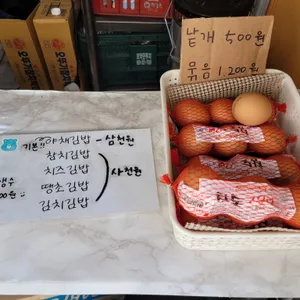 낱개 500원
묶음 1,200원
기본 야채김밥 - 삼천원
참치김밥
치즈김밥
땡초김밥
김치김밥
사천원
생수